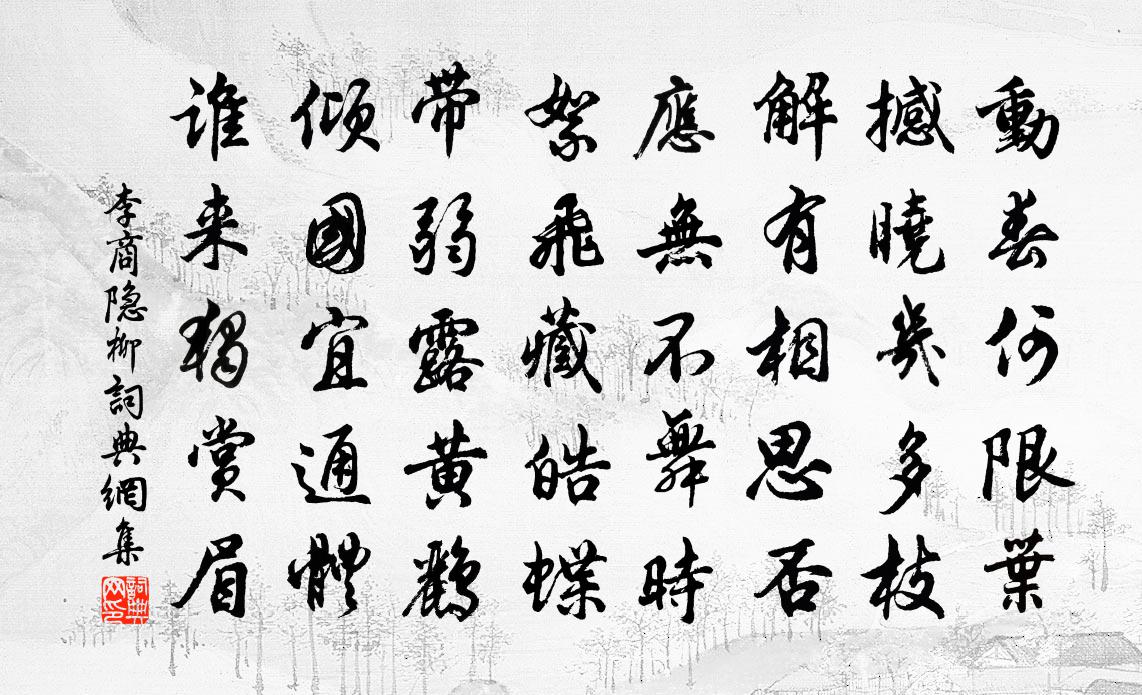 動春何限葉
撼曉幾多枝
解有相思否
應無不舞時
絮飛藏皓蝶
帶弱露黃鸝
傾國宜通體
誰来獨賞眉
李商隐柳詞典網集
詞典网印